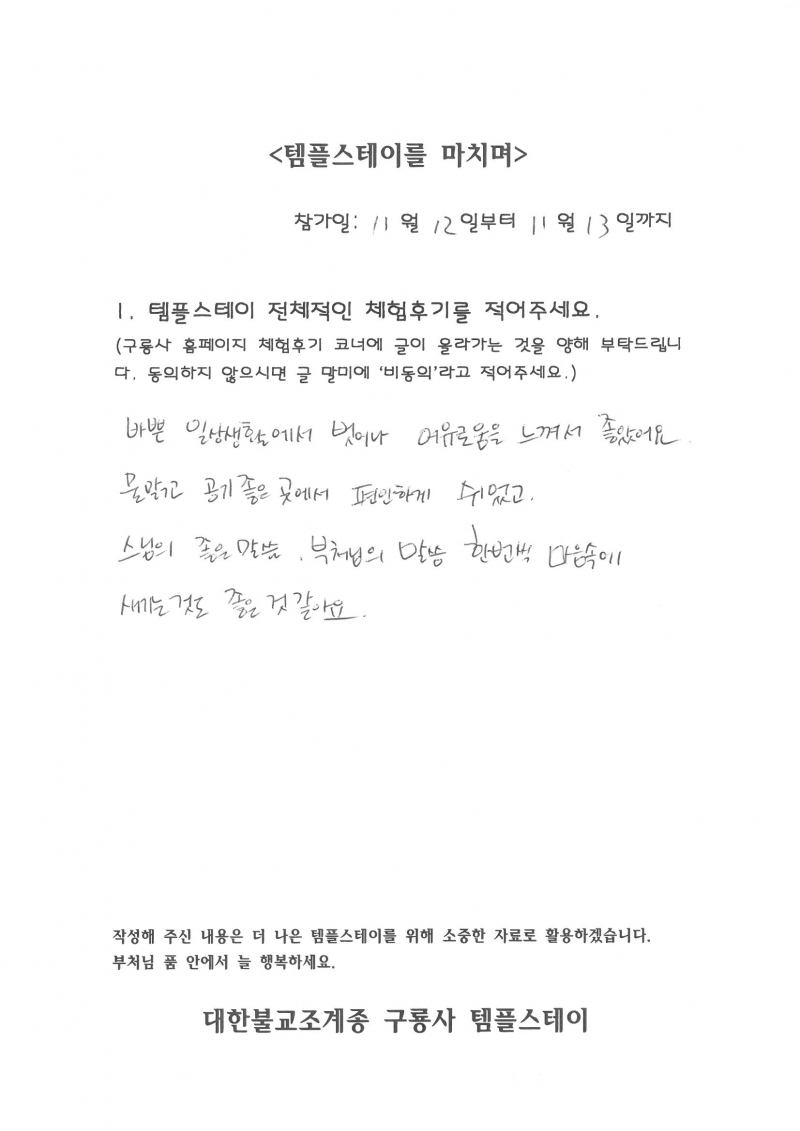 <템플스테이를 마치며>
참가일: 11 월 12 일부터 11 월 13 일까지
1. 템플스테이 전체적인 체험후기를 적어주세요.
(구룡사 홈페이지 체험후기 코너에 글이 올라가는 것을 양해 부탁드립니
다. 동의하지 않으시면 글 말미에 '비동의'라고 적어주세요.)
바쁜 일상생활에서 벗어나 여유로움을 느껴서 좋았어요.
물맑고 공기 좋은 곳에서 편안하게 쉬었고.
스님의 좋은 말씀. 부처님의 말씀 한번씩 마음속에
새기는것도 좋은 것 같아요.
작성해 주신 내용은 더 나은 템플스테이를 위해 소중한 자료로 활용하겠습니다.
부처님 품 안에서 늘 행복하세요.
대한불교조계종 구룡사 템플스테이